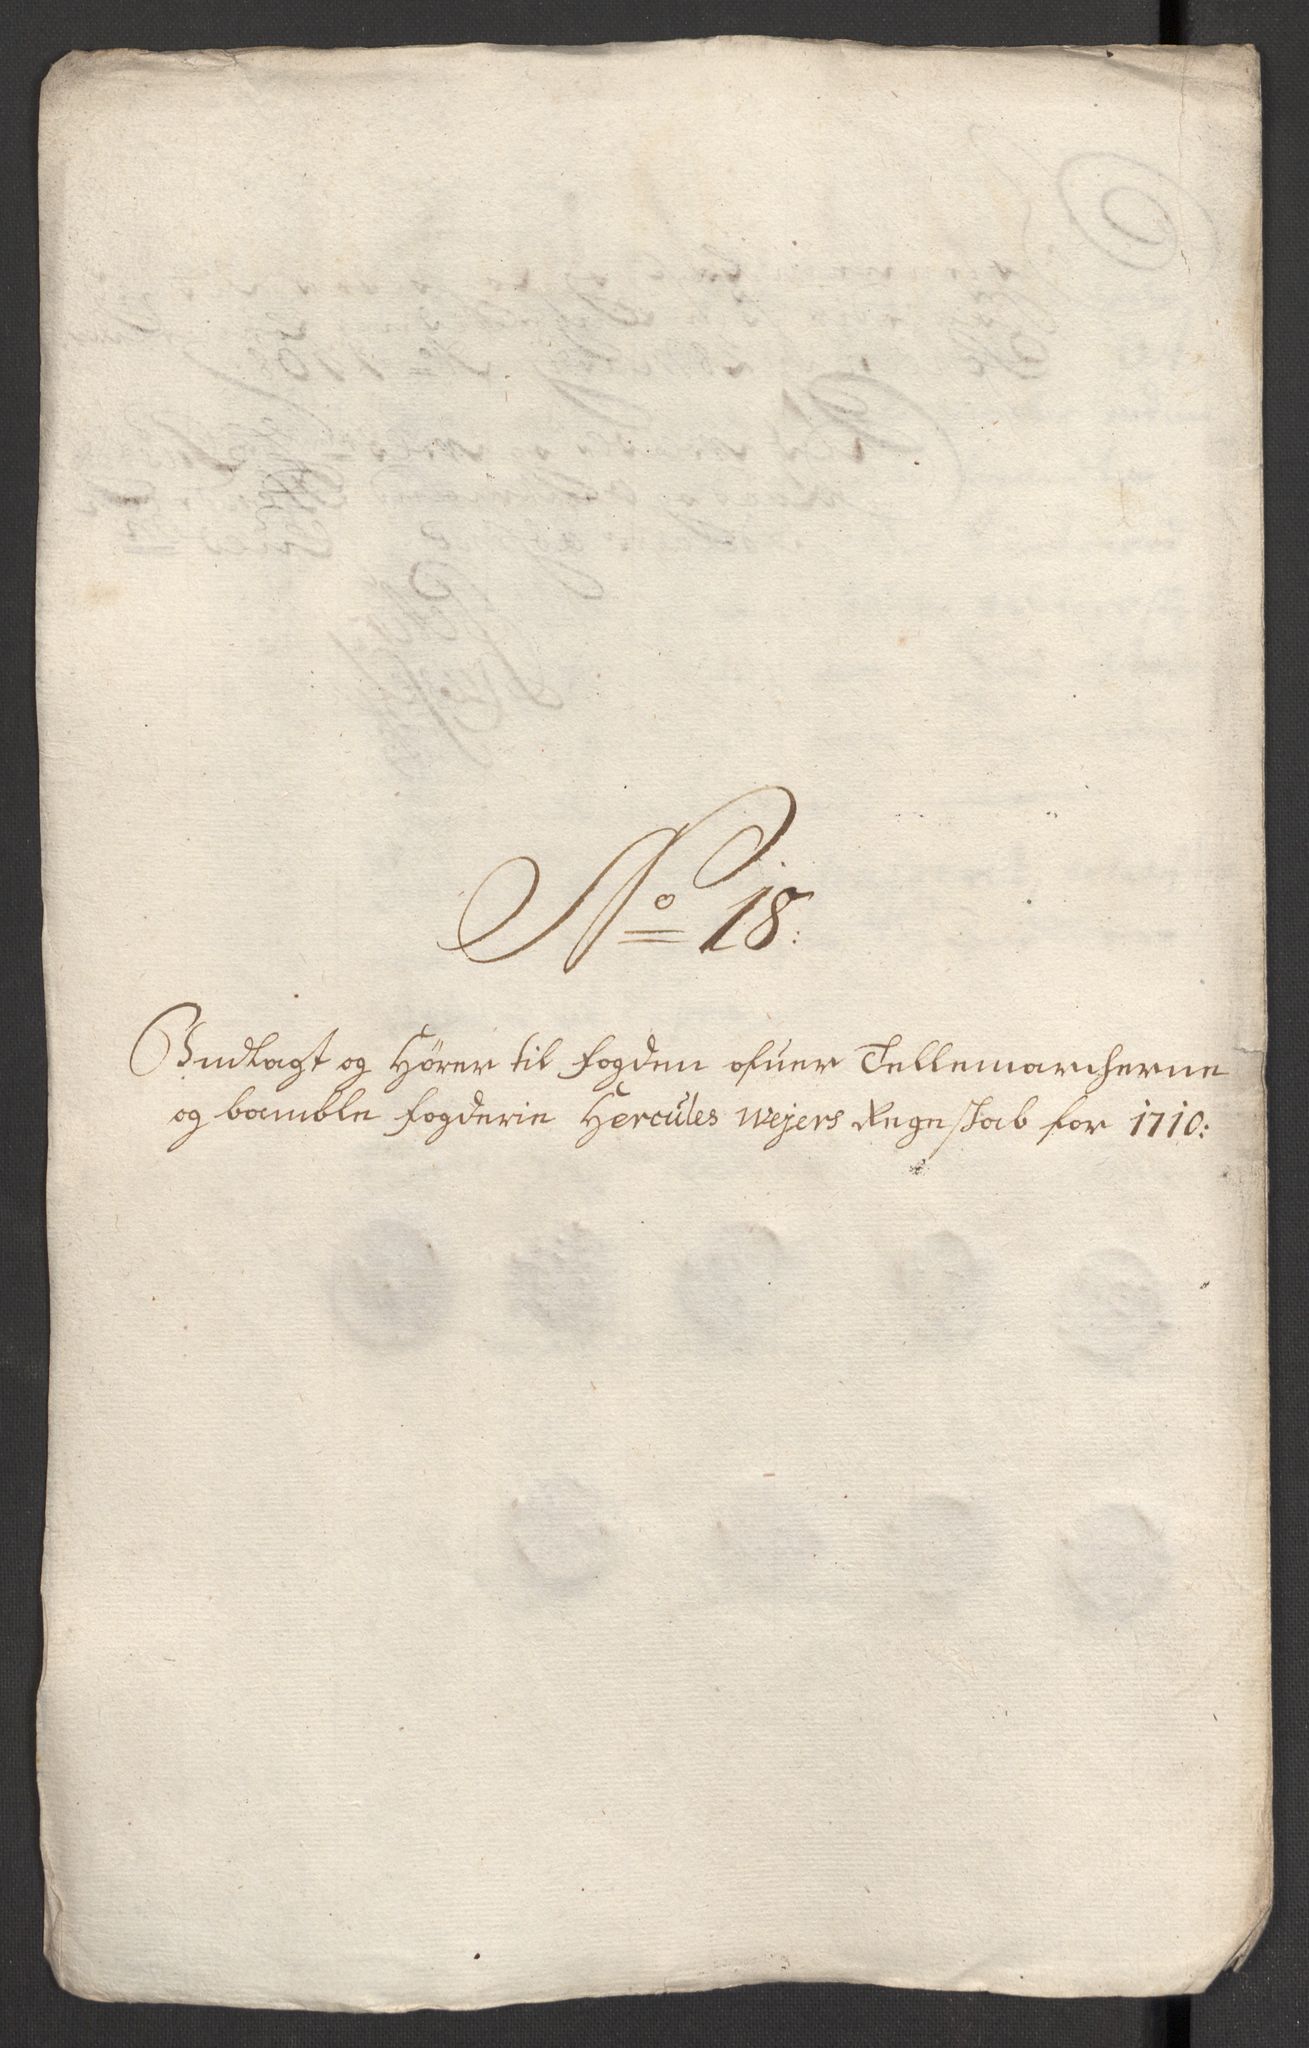 No 18:
Indlagt og Hører til fogden ofuer Tellemarcherne
og bamble fogderie Hercules Wejers Regeskab for 1710: